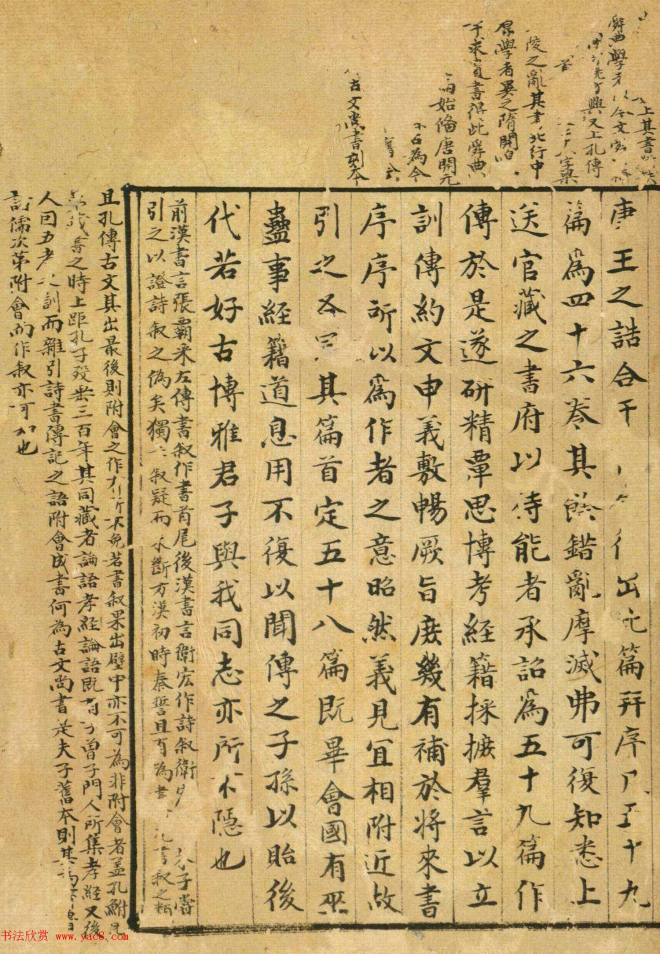 上其書
舜典學者
以今文
興又上孔傳
陵之亂其書北行中
原學者異之隋開皇
求 書得此舜典
始備唐開元
為今
古文尚書
康王之誥合于 出 篇 序 五十九
篇為四十六卷其餘錯亂摩滅弗可復知悉上
送官藏之書府以待能者承詔為五十九篇作
傳於是遂研精覃思博考經籍採摭羣言以立
訓傳約文申義敷暢厥旨庶幾有補於將來書
序序所以為作者之意昭然義見宜相附近故
引之各冠其篇首定五十八篇既畢會國有巫
蠱事經籍道息用不復以聞傳之子孫以貽後
代若好古博雅君子與我同志亦所不隱也
前漢書言張霸采左傳書叙作書首尾後漢書言衛宏作詩叙衛 朱子嘗
引之以證詩叙之偽矣獨 叙疑而未斷方漢初時泰誓且有偽書 書叙之類
且孔傳古文其出最後則附會之作 所不免若書叙果出壁中亦不可為非附會者蓋孔鮒
藏書之時上距孔子殁垂三百年其同藏者論語孝經論語既 曾子門人所集孝經又後
人因五孝之訓而雜引詩書傳記之語附會成書何為古文尚書 是夫子舊本則其為
諸儒次第附會而作叙亦可知也
书法欣赏 www.yac8.com